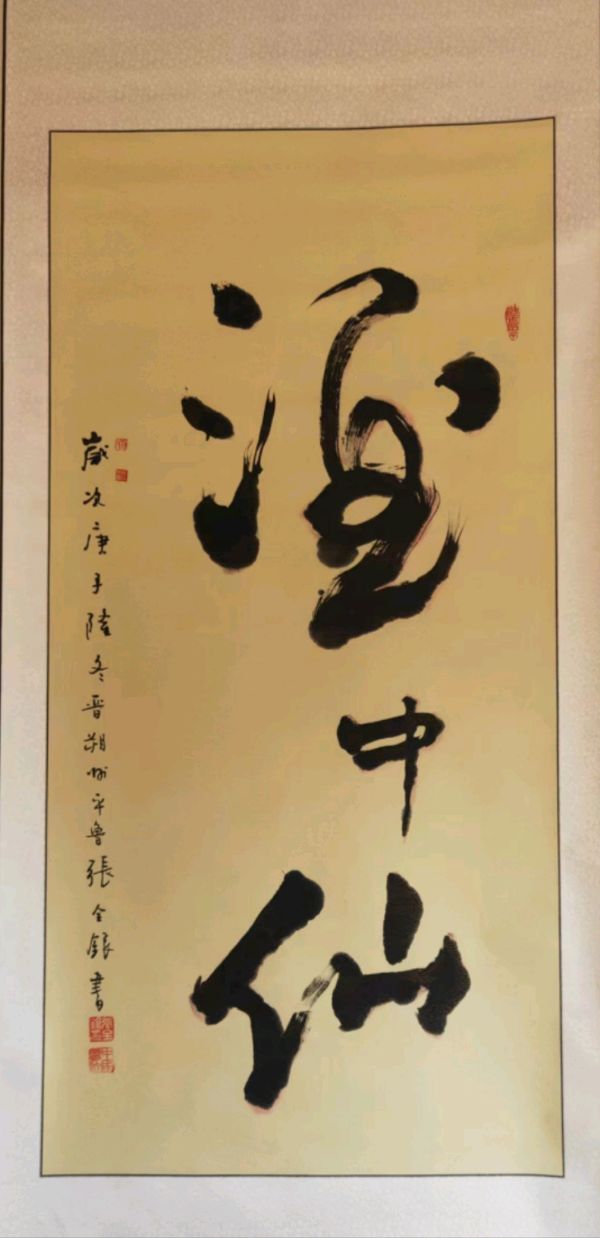 酒中仙
歲次庚子隆冬晋朔州平魯張全銀書